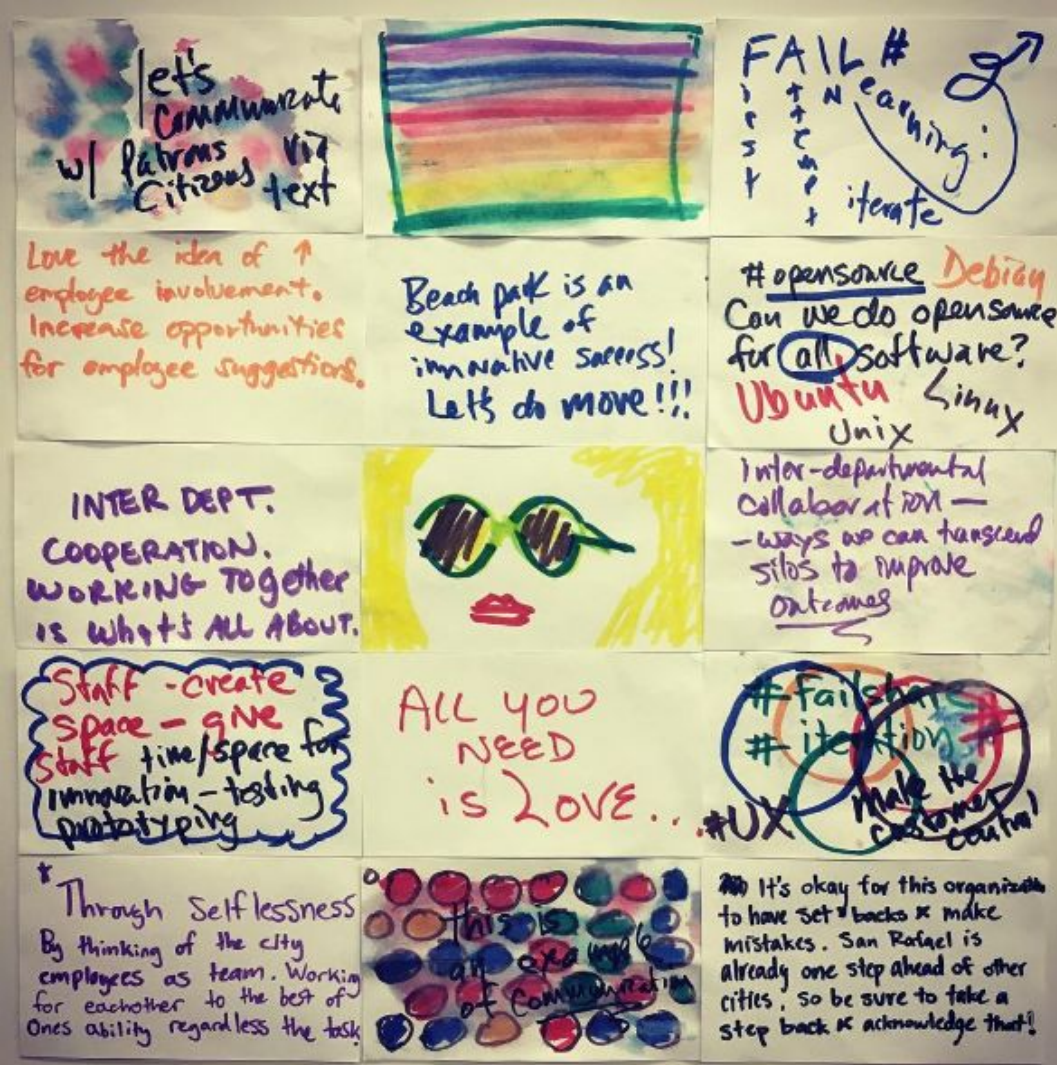 let's
Communicate
w/ Patrons via
Citizens text
FAIL #
First Attempt iN Learning!
iterate
Love the idea of ↑
employee involvement.
Increase opportunities
for employee suggestions.
Beach park is an
example of
innovative success!
Let's do more!!!
#opensource Debian
Can we do opensource
for all software?
Ubuntu Linux
Unix
INTER DEPT.
COOPERATION.
WORKING TOgether
is What's ALL ABOUT.
Inter-departmental
collaboration —
- ways we can transcend
silos to improve
outcomes
Staff - create
space - give
Staff time/space for
innovation - testing
prototyping
ALL YOU
NEED
is LOVE...
#failshare
#iteration
#UX make the
customer
central
* Through Selflessness
By thinking of the city
employees as team. Working
for eachother to the best of
Ones ability regardless the task
this is
an example
of communication
It's okay for this organization
to have set backs & make
mistakes. San Rafael is
already one step ahead of other
cities, so be sure to take a
step back & acknowledge that!